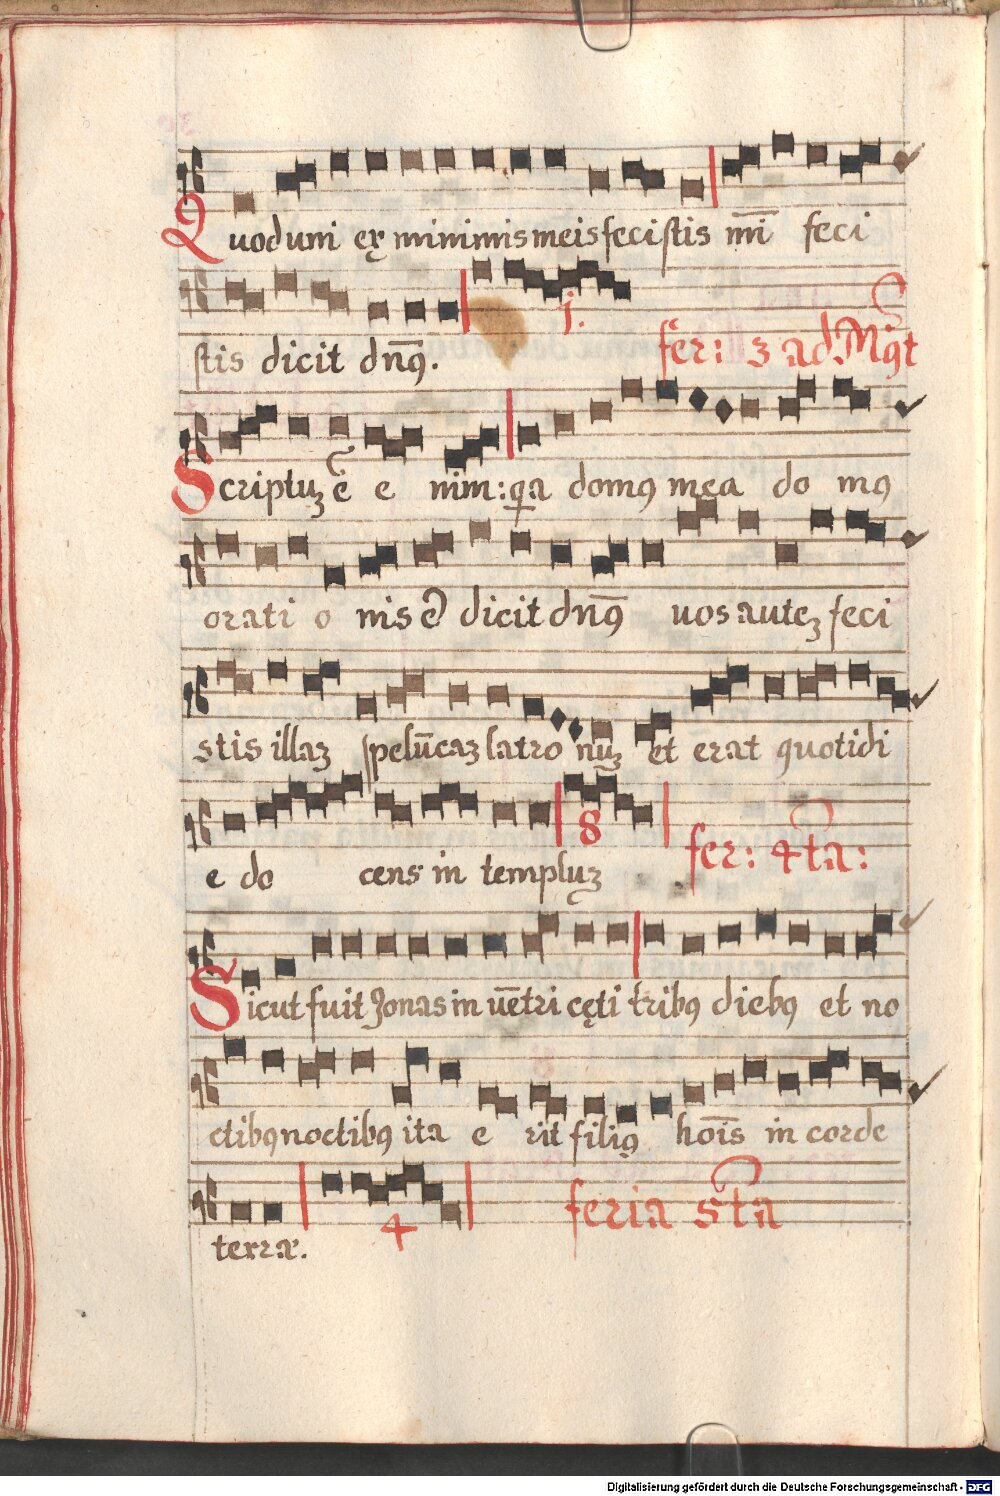 Quod uni ex minimis meis fecistis mi̅ feci
stis dicit dn̅9. j.
fer: 3 ad Mgt
Scriptuʒ e̅ e nim: qa domꝰ mea do mꝰ
orati o nis e̅ dicit dn̅9 uos auteʒ feci
stis illaʒ spelu̅caʒ latro nuʒ et erat quotidi
e do cens in templuʒ 8 fer: 4ta:
Sicut fuit Jonas in ue̅tri cęti tribꝰ diebꝰ et no
ctibꝰ noctibꝰ ita e rit filiꝰ hoi̅s in corde
terræ. 4 feria 5ta
Digitalisierung gefördert durch die Deutsche Forschungsgemeinschaft - DFG